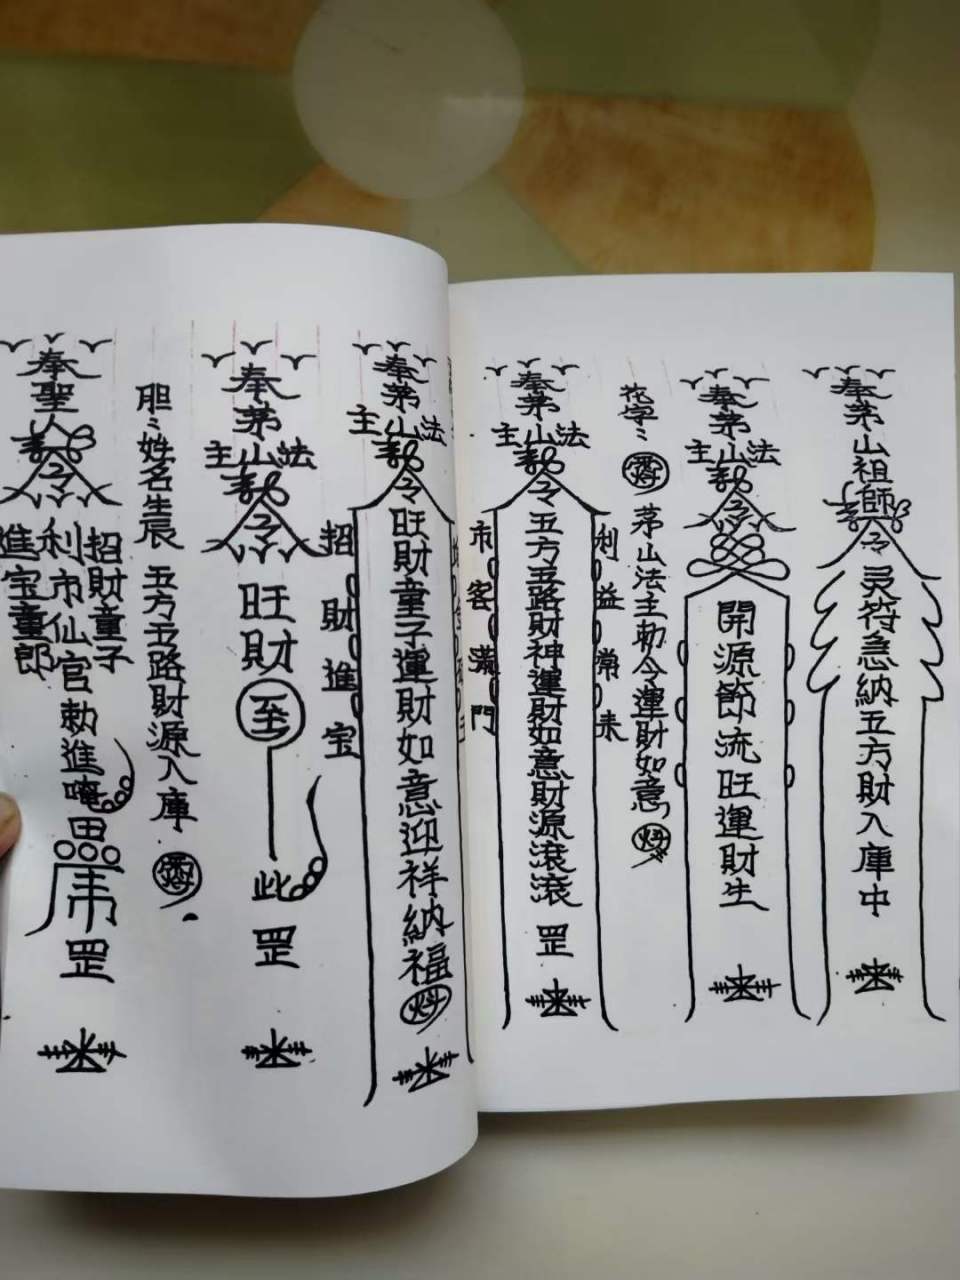 奉茅山祖師
令
灵符急納五方財入庫中
奉茅山
主法
開源節流旺運財生
花字:
茅山法主勅令運財如意
奉茅山
主法
令
利益常来
五方五路財神運財如意財源滾滾
罡
市客滿門
奉茅山
主法
令
旺財童子運財如意迎祥納福
招財進宝
奉茅山
主法
令
旺財
至
此
罡
胆:姓名生辰
五方五路財源入庫
奉聖
令
招財童子
利市仙官勅進唵
進宝童郎
罡